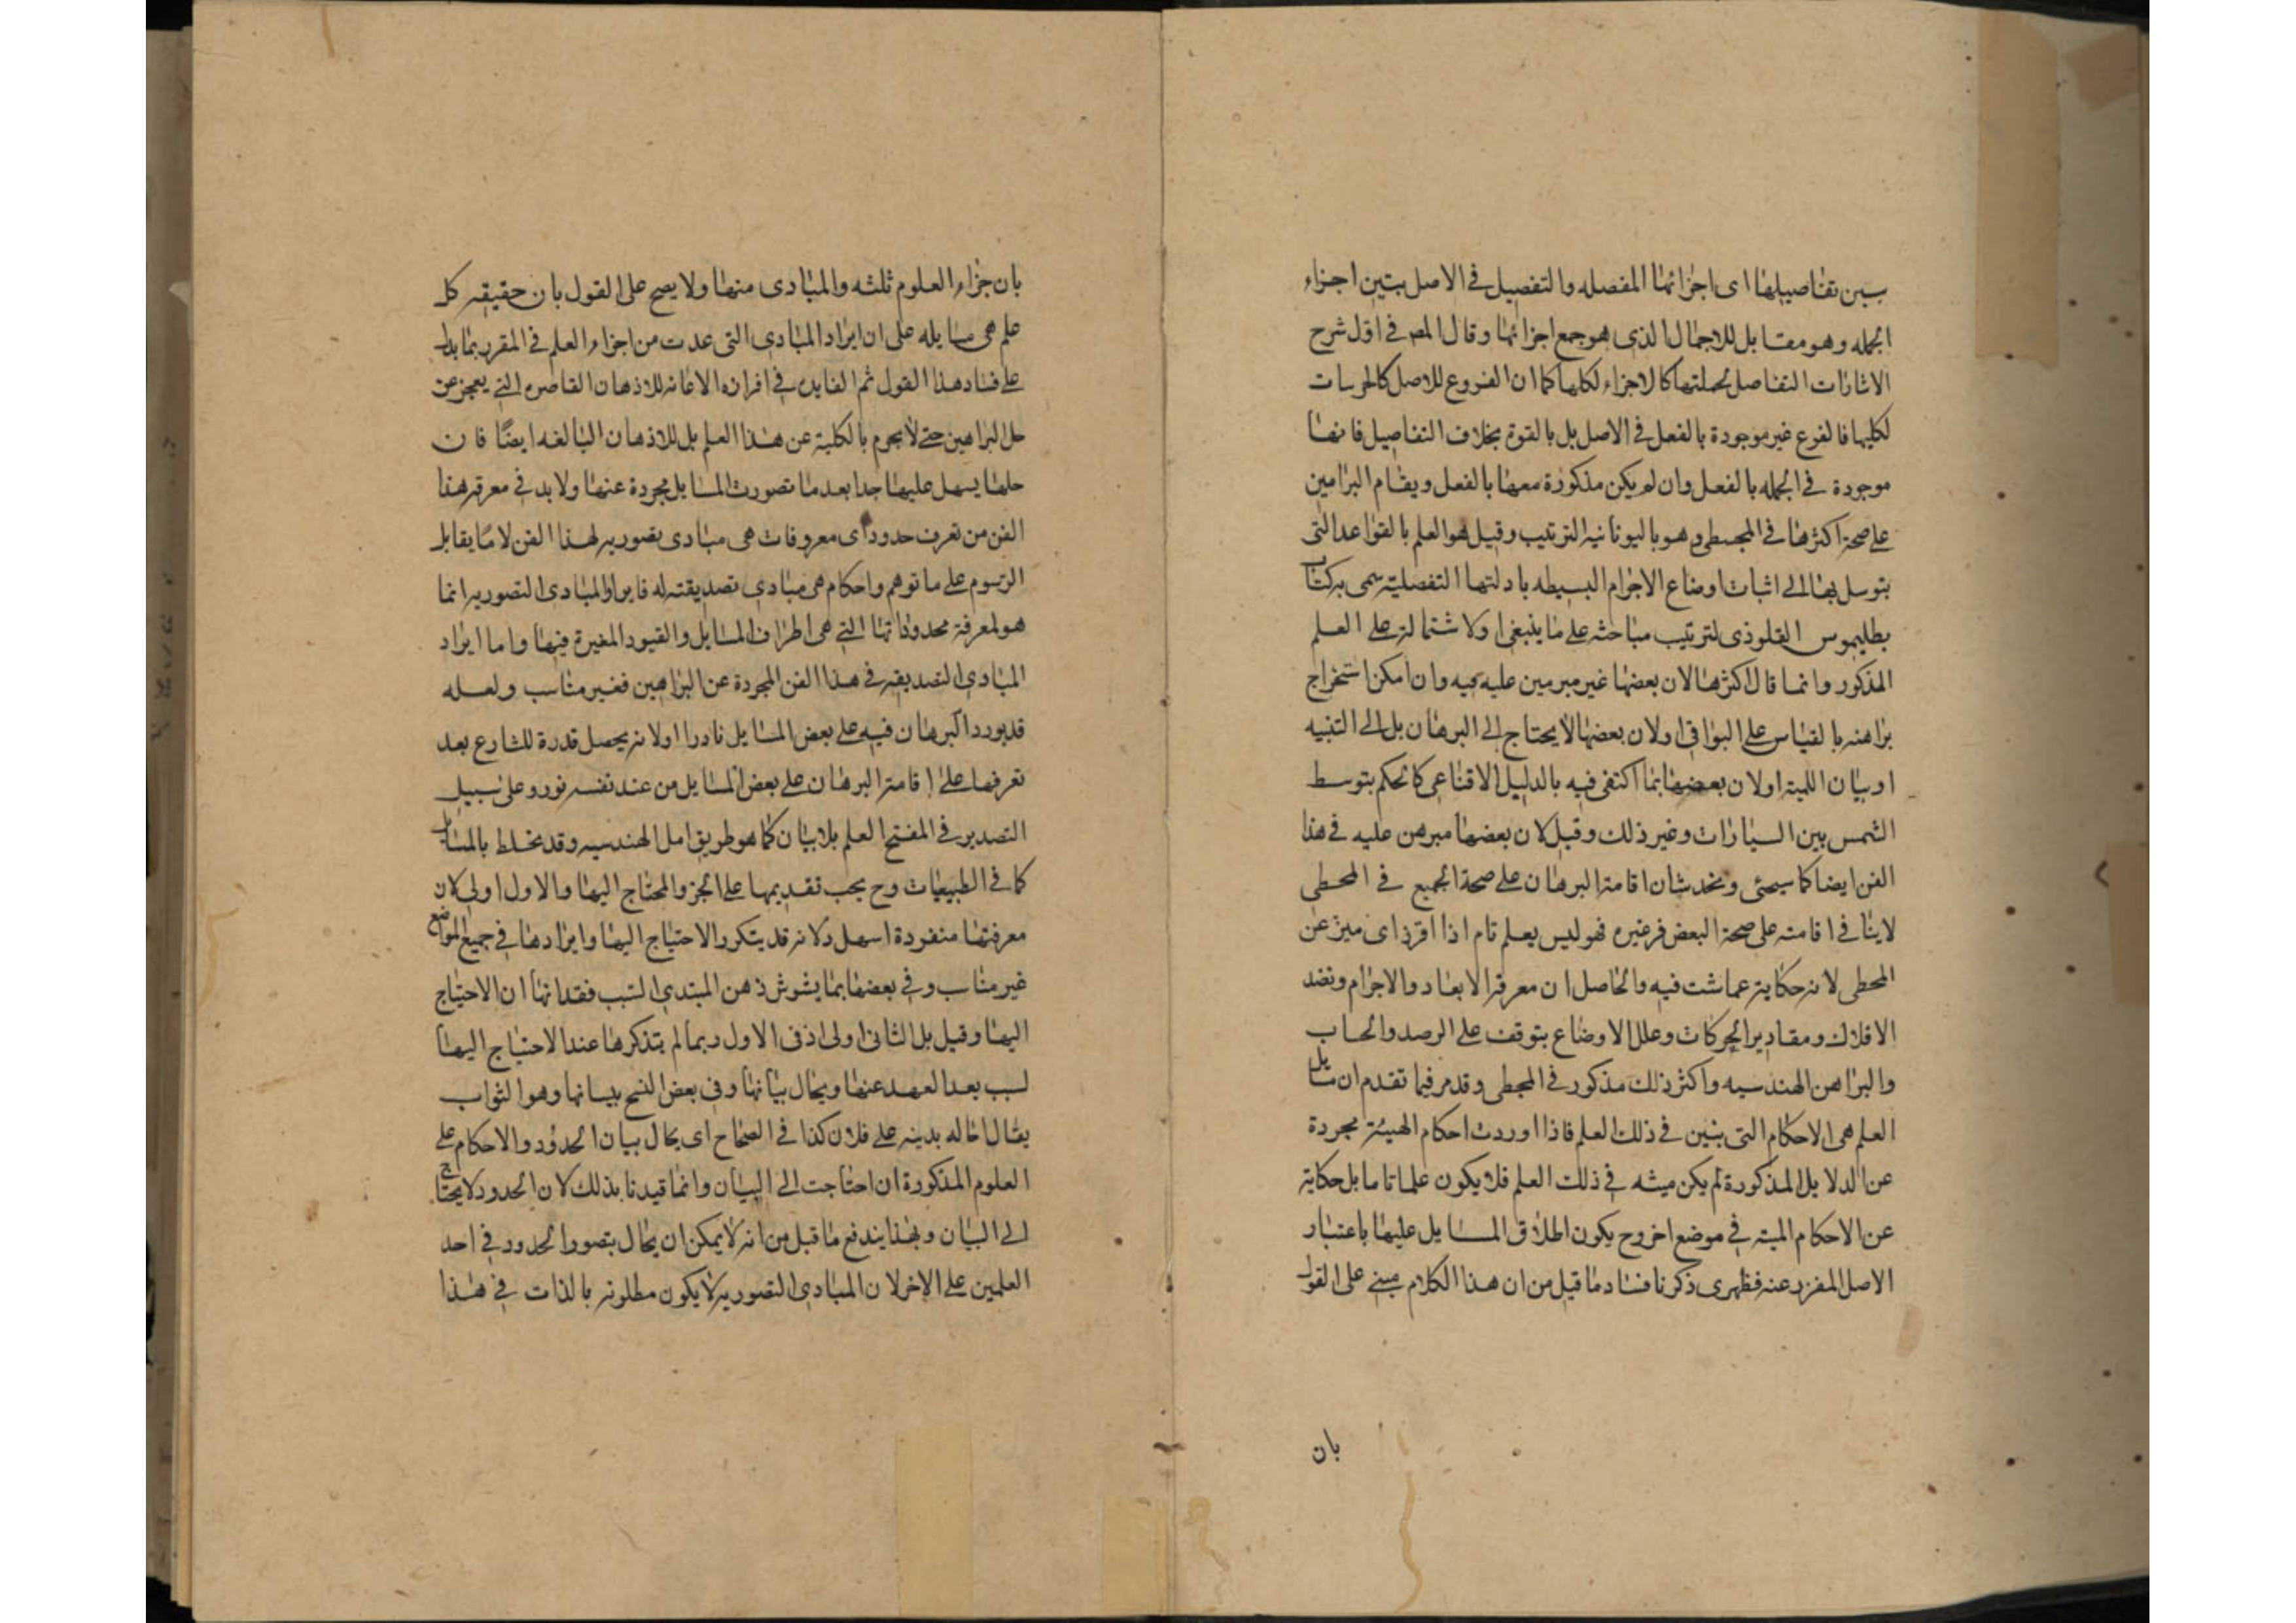 يبين تفاصيلها اى اجزائها المفصله والتفصيل فى الاصل تبيين اجزاء
الجمله وهو مقابل للاجمال الذى هو جمع اجزائها وقال المص فى اول شرح
الاشارات التفاصل لجملتها كالاجزاء لكلها كما ان الفروع للاصل كالجزئيات
لكليها فالفرع غير موجودة بالفعل فى الاصل بل بالقوة بخلاف التفاصيل فانها
موجودة فى الجمله بالفعل وان لم يكن مذكورة معها بالفعل ويقام البراهين
على صحة اكثرها فى المجسطى وهو باليونانيه الترتيب وقيل هو العلم بالقواعد التى
يتوسل بها الى اثبات اوضاع الاجرام البسيطه بادلتها التفصليته سمى به كتاب
بطليموس القلوذى لترتيب مباحثه على ما ينبغى او لاشتماله على العلم
المذكور وانما قال اكثرها لان بعضها غير مبرهن عليه فيه وان امكن استخراج
براهنه بالقياس على البواقى او لان بعضها لا يحتاج الى البرهان بل الى التنبيه
او بيان اللميته او لان بعضها بما اكتفى فيه بالدليل الاقناعى كالحكم بتوسط
الشمس بين السيارات وغير ذلك وقيل لان بعضها مبرهن عليه فى هذا
الفن ايضا كما سيجئ ويخدشه ان اقامة البرهان على صحة الجميع فى المجسطى
لاينافى اقامته على صحة البعض فى غيره فهو ليس بعلم تام اذا افرز اى ميز عن
المجسطى لانه حكاية عما ثبت فيه والحاصل ان معرفة الابعاد والاجرام ونضد
الافلاك ومقادير الحركات وعلل الاوضاع يتوقف على الرصد والحساب
والبراهن الهندسيه واكثر ذلك مذكور فى المجسطى وقد مر فيما تقدم ان مسائل
العلم هى الاحكام التى يبين فى ذلك العلم فاذا اوردت احكام الهيئة مجردة
عن الدلايل المذكورة لم يكن مبينه فى ذلك العلم فلا يكون علما تاما بل حكاية
عن الاحكام المبينه فى موضع اخر وح يكون اطلاق المسايل عليها باعتبار
الاصل المفرز عنه فظهر مما ذكرنا فساد ما قيل من ان هذا الكلام مبنى على القول
بان
بان جزاء العلوم ثلثه والمبادى منها ولا يصح على القول بان حقيقه كل
علم هى مسايله على ان ايراد المبادى التى عدت من اجزاء العلم فى المقرر بما يدل
على فساد هذا القول ثم الفايده فى افرازه الاعانه للاذهان القاصره التى يعجز عن
حل البراهين حتى لا يحرم بالكلية عن هذا العلم بل للاذهان البالغه ايضا فان
حلها يسهل عليها جدا بعد ما تصورت المسايل مجردة عنها ولا بد فى معرفه هذا
الفن من تعرف حدود اى معروفات هى مبادى تصوريه لهذا الفن لا ما يقابل
الرسوم على ما توهم واحكام هى مبادى تصديقته له فايراد المبادى التصوريه انما
هو لمعرفة محدوداتها التى هى اطراف المسايل والقيود المغيرة فيها واما ايراد
المبادى التصديقيه فى هذا الفن المجردة عن البراهين فغير مناسب ولعله
قد يورد البرهان فيه على بعض المسايل نادرا او لانه يحصل قدرة للشارع بعد
تعرفها على اقامة البرهان على بعض المسايل من عند نفسه نورد على سبيل
التصدير فى المفتح العلم بلا بيان كما هو طريق اهل الهندسيه وقد يخلط بالمسايل
كما فى الطبيعيات وح يجب تقديمها على الجزو المحتاج اليها والاول اولى لان
معرفتها منفردة اسهل ولانه قد يتكرر الاحتياج اليها وايرادها فى جميع المواضع
غير مناسب وفى بعضها بما يشوش ذهن المبتدى لسبب فقدانها ان الاحتياج
اليها وقيل بل الثانى اولى اذ فى الاول ربما لم يتذكرها عند الاحتياج اليها
لسبب بعد العهد عنها ويحال بيانها وفى بعض النسخ بيسانها وهو الثواب
يقال احاله بدينه على فلان كذا فى الصحاح اى يحال بيان الحدود والاحكام على
العلوم المذكورة ان احتاجت الى البيان وانما قيدنا بذلك لان الحدود لا يحتاج
الى البيان وبهذا يندفع ما قيل من انه لا يمكن ان يحال بتصور الحدود فى احد
العلمين على الاخر لان المبادى التصوريه لا يكون مطلوبه بالذات فى هذا